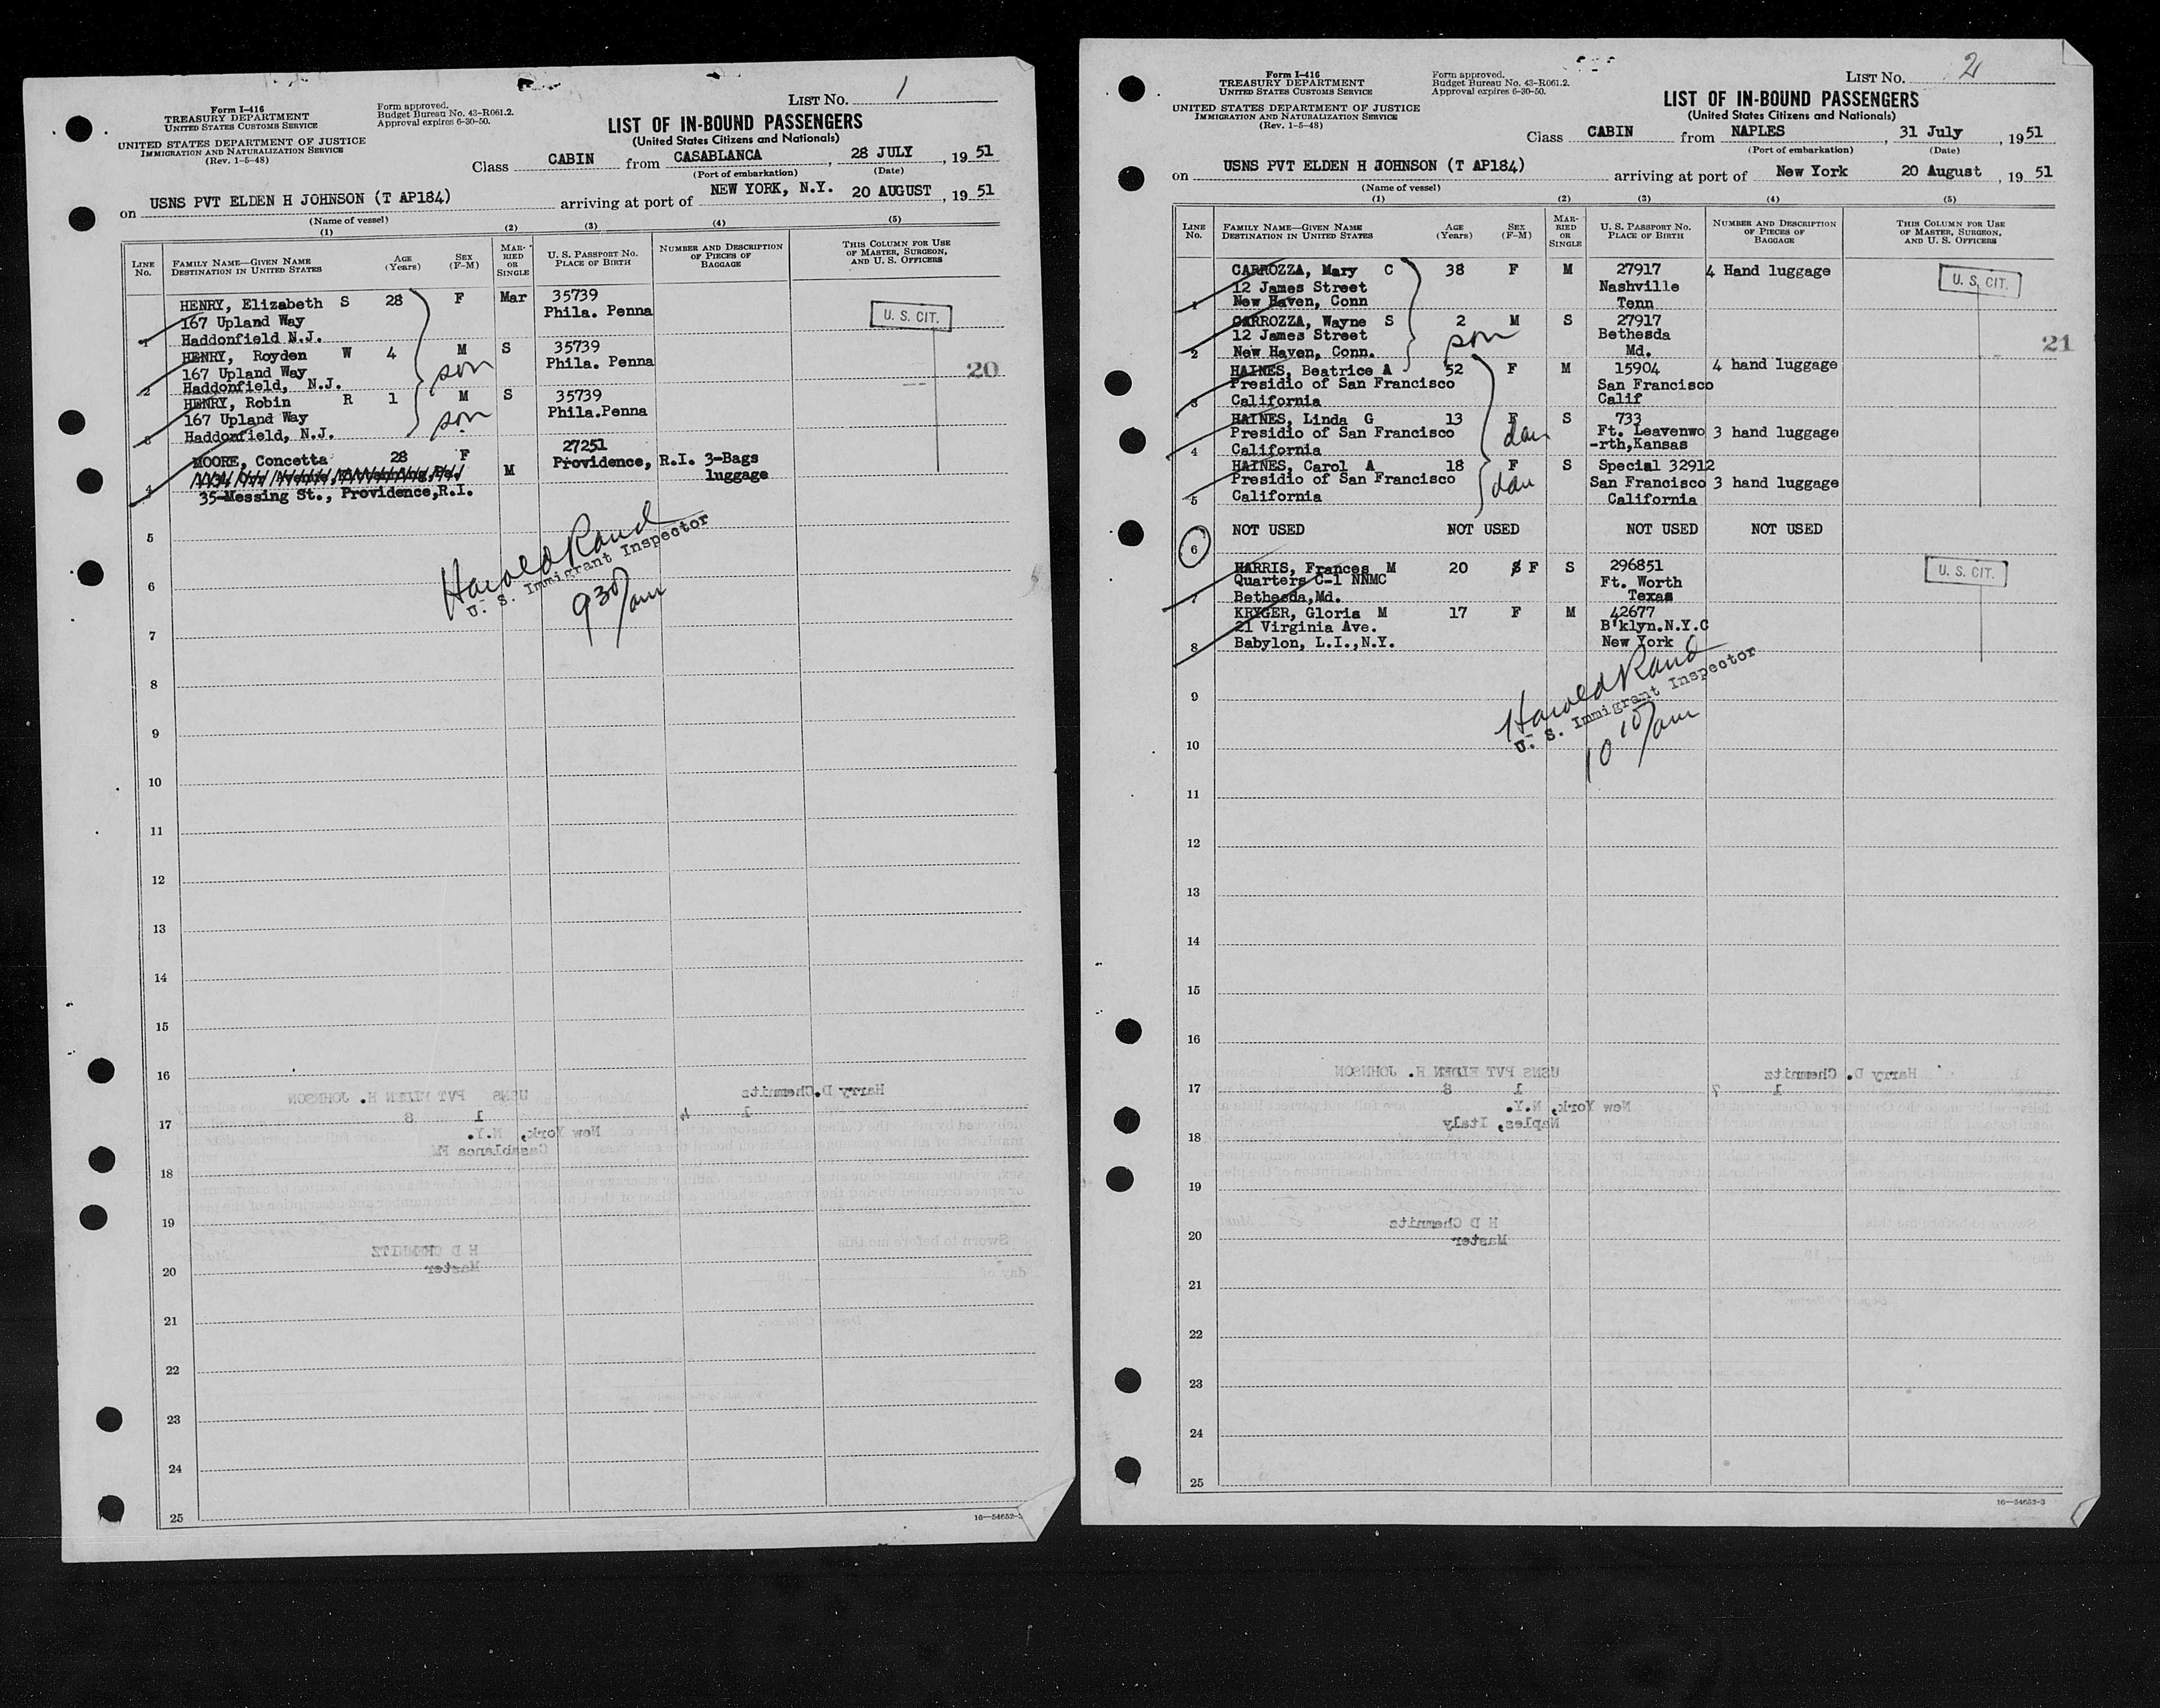 Form I-416
TREASURY DEPARTMENT
UNITED STATES CUSTOMS SERVICE
UNITED STATES DEPARTMENT OF JUSTICE
IMMIGRATION AND NATURALIZATION SERVICE
(Rev. 1-5-48)
Form approved.
Budget Bureau No. 43-R061.2.
Approval expires 6-30-50.
LIST No. 1
LIST OF IN-BOUND PASSENGERS
(United States Citizens and Nationals)
Class CABIN from CASABLANCA, 28 JULY, 1951
(Port of embarkation) (Date)
on USNS PVT ELDEN H JOHNSON (T AP184) arriving at port of NEW YORK, N.Y. 20 AUGUST, 1951
(Name of vessel)
(1) (2) (3) (4) (5)
LINE No. FAMILY NAME—GIVEN NAME DESTINATION IN UNITED STATES AGE (Years) SEX (F-M) MARRIED OR SINGLE U. S. PASSPORT No. PLACE OF BIRTH NUMBER AND DESCRIPTION OF PIECES OF BAGGAGE THIS COLUMN FOR USE OF MASTER, SURGEON, AND U. S. OFFICERS
HENRY, Elizabeth S 28 F Mar 35739
167 Upland Way Phila. Penna U. S. CIT.
1 Haddonfield N.J.
HENRY, Royden W 4 M S 35739
167 Upland Way son Phila. Penna 20
2 Haddonfield, N.J.
HENRY, Robin R 1 M S 35739
167 Upland Way son Phila.Penna
3 Haddonfield, N.J.
27251
MOORE, Concetta 28 F M Providence, R.I. 3-Bags
luggage
4 35-Messing St., Providence,R.I.
5
Harold Rand
U. S. Immigrant Inspector
6
930/am
7
8
9
10
11
12
13
14
15
16
Harry D. Chemnitz USNS PVT ELDEN H. JOHNSON
17 1 4 1 8
New York, N.Y.
Casablanca FM
18
19
Sworn to before me this
H D CHEMNITZ
Master
20
21
22
23
24
25
16—54652-3
Form I-416
TREASURY DEPARTMENT
UNITED STATES CUSTOMS SERVICE
UNITED STATES DEPARTMENT OF JUSTICE
IMMIGRATION AND NATURALIZATION SERVICE
(Rev. 1-5-48)
Form approved.
Budget Bureau No. 43-R061.2.
Approval expires 6-30-50.
LIST No. 2
LIST OF IN-BOUND PASSENGERS
(United States Citizens and Nationals)
Class CABIN from NAPLES, 31 July, 1951
(Port of embarkation) (Date)
on USNS PVT ELDEN H JOHNSON (T AP184) arriving at port of New York 20 August, 1951
(Name of vessel)
(1) (2) (3) (4) (5)
LINE No. FAMILY NAME—GIVEN NAME DESTINATION IN UNITED STATES AGE (Years) SEX (F-M) MARRIED OR SINGLE U. S. PASSPORT No. PLACE OF BIRTH NUMBER AND DESCRIPTION OF PIECES OF BAGGAGE THIS COLUMN FOR USE OF MASTER, SURGEON, AND U. S. OFFICERS
CARROZZA, Mary C 38 F M 27917 4 Hand luggage
12 James Street Nashville U. S. CIT.
1 New Haven, Conn Tenn
CARROZZA, Wayne S 2 M S 27917
12 James Street son Bethesda 21
2 New Haven, Conn. Md.
HAINES, Beatrice A 52 F M 15904 4 hand luggage
Presidio of San Francisco San Francisco
3 California Calif
HAINES, Linda G 13 F S 733
Presidio of San Francisco dau Ft. Leavenwo 3 hand luggage
4 California -rth,Kansas
HAINES, Carol A 18 F S Special 32912
Presidio of San Francisco dau San Francisco 3 hand luggage
5 California California
6 NOT USED NOT USED NOT USED NOT USED
HARRIS, Frances M 20 F S 296851 U. S. CIT.
Quarters C-1 NNMC Ft. Worth
7 Bethesda,Md. Texas
KRYGER, Gloria M 17 F M 42677
21 Virginia Ave. B'klyn.N.Y.C
8 Babylon, L.I.,N.Y. New York
9
Harold Rand
U. S. Immigrant Inspector
10
10 10/am
11
12
13
14
15
16
Harry D. Chemnitz USNS PVT ELDEN H. JOHNSON
17 1 7 1 8
New York, N.Y.
Naples, Italy
18
19
H D Chemnitz
Master
20
21
22
23
24
25
16—54652-3